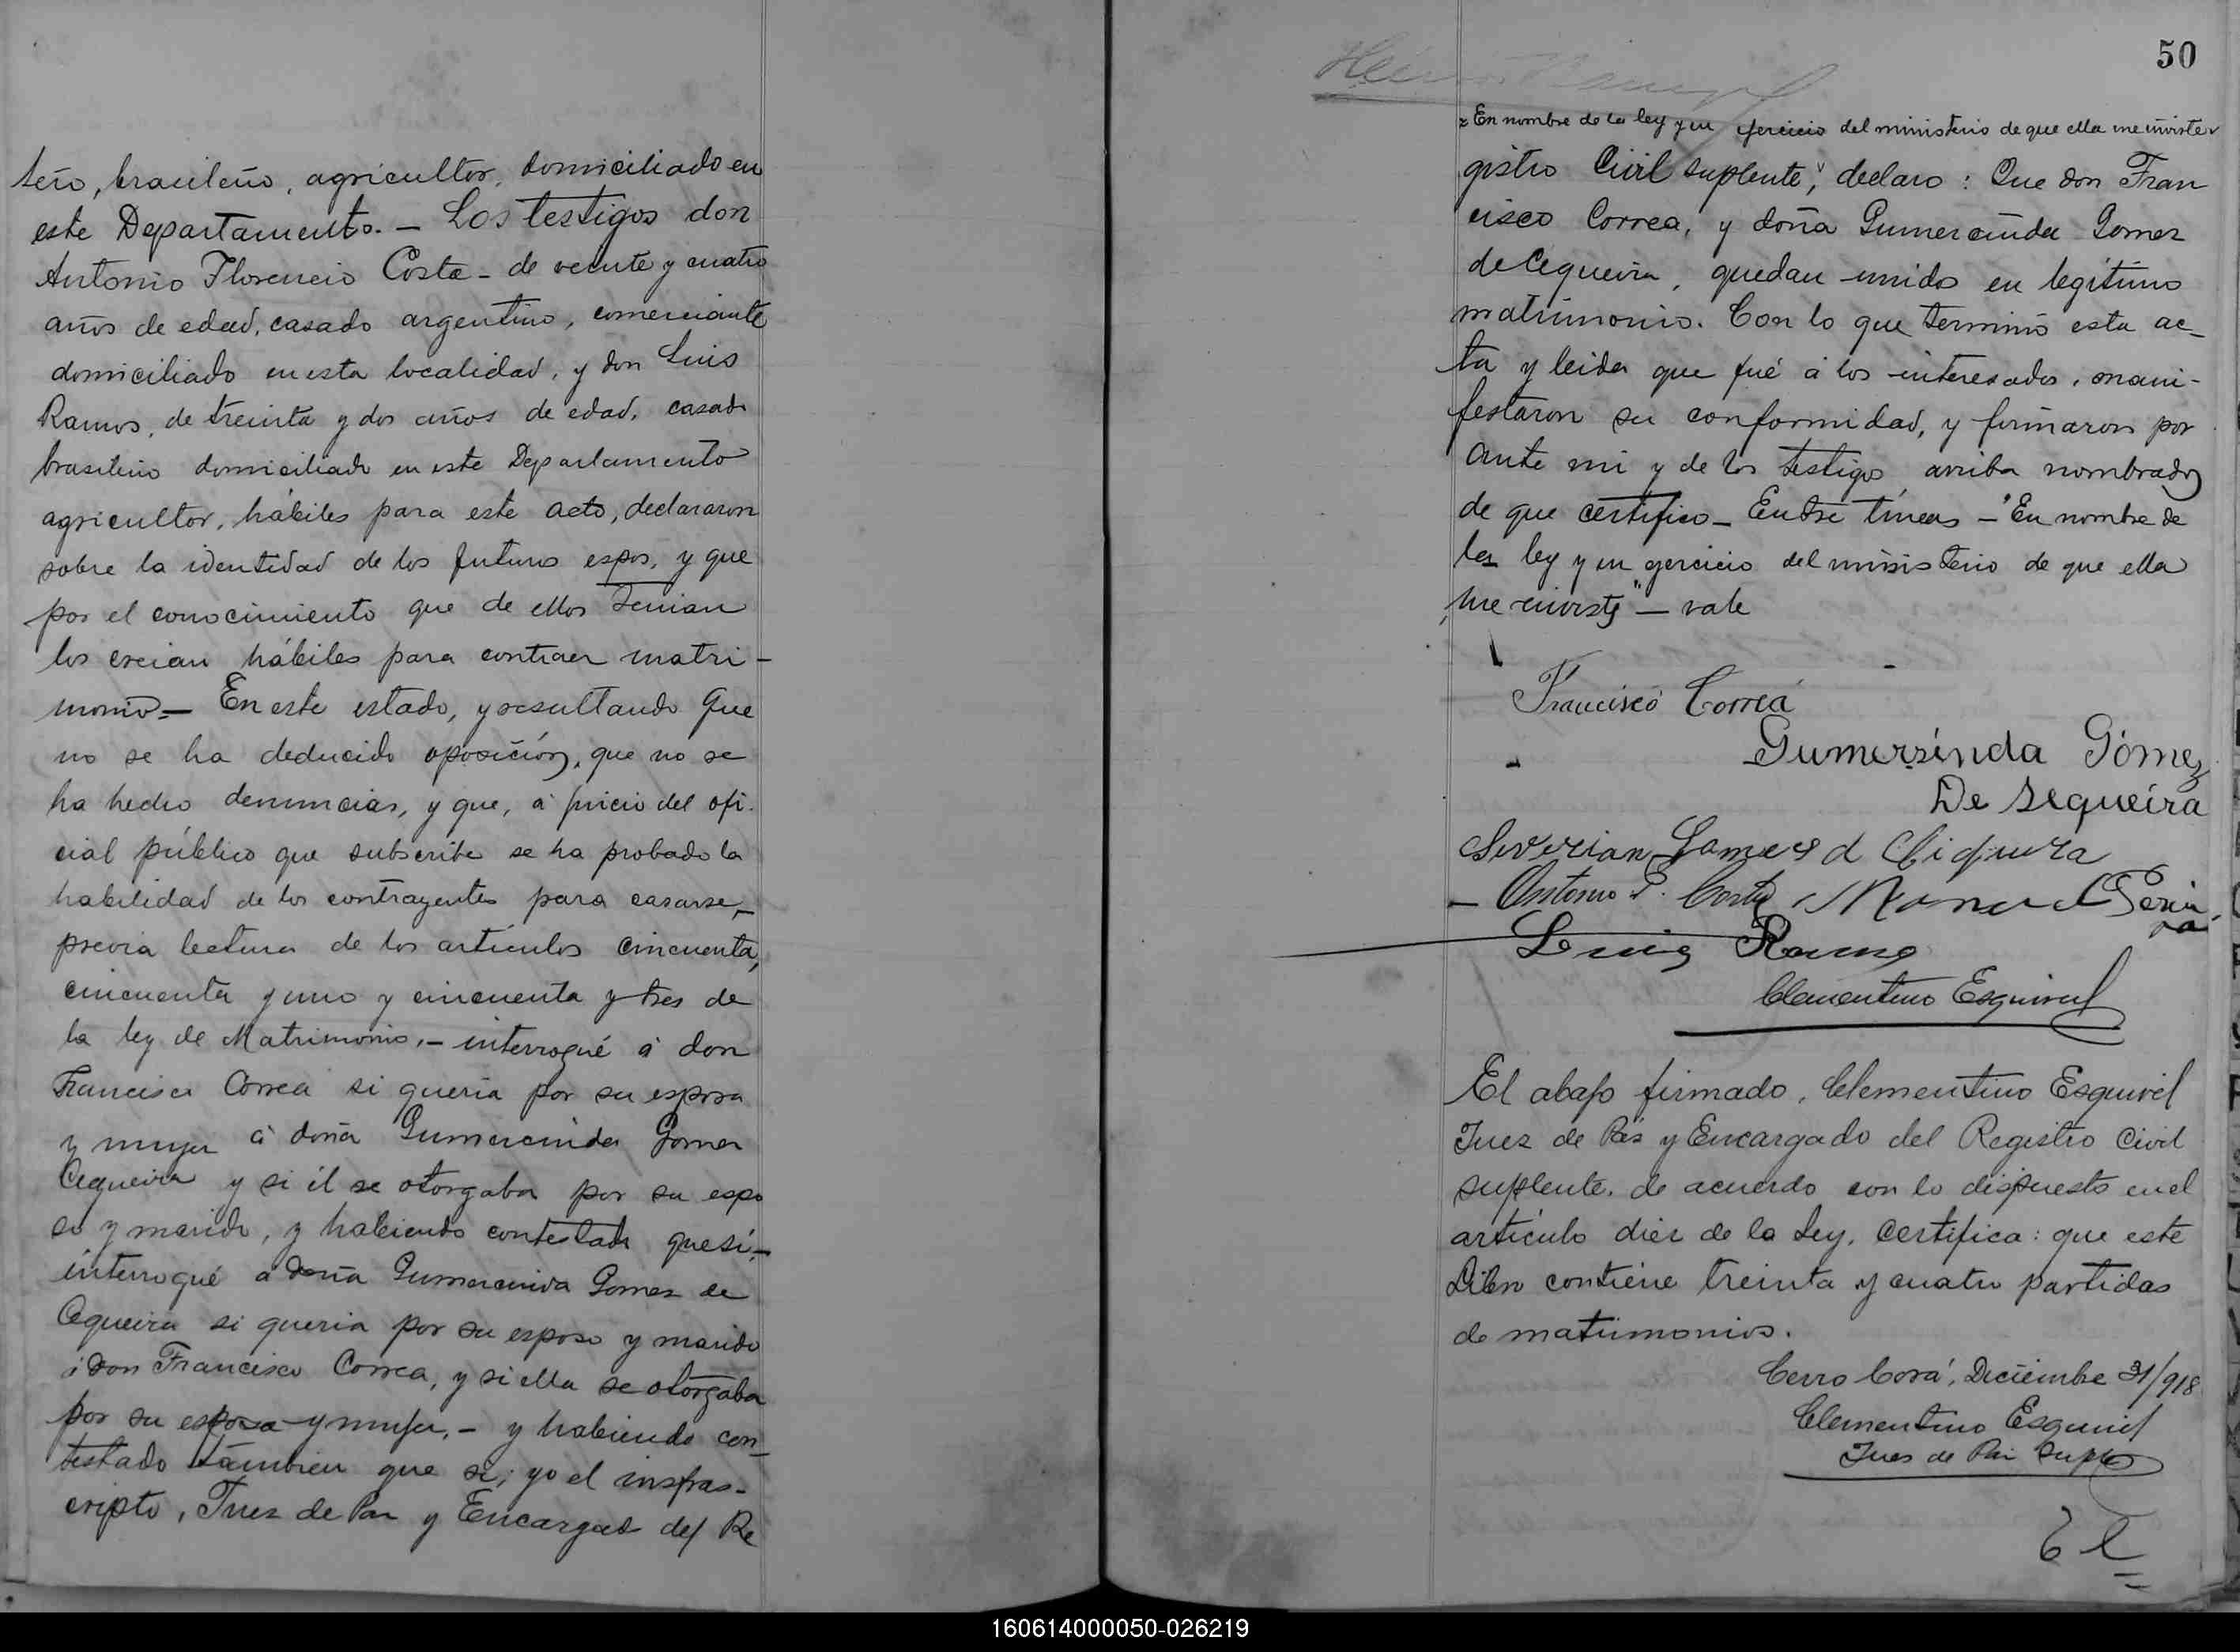 tero, brasileño, agricultor, domiciliado en
este Departamento. - Los testigos don
Antonio Florencio Costa - de veinte y cuatro
años de edad, casado argentino, comerciante
domiciliado en esta localidad, y don Luis
Ramos, de treinta y dos años de edad, casado
brasileño domiciliado en este Departamento
agricultor, hábiles para este acto, declararon
sobre la identidad de los futuros espos, y que
por el conocimiento que de ellos tenian
los creian hábiles para contraer matri-
monio. - En este estado, y resultando que
no se ha deducido oposición, que no se
ha hecho denuncias, y que, á juicio del ofi-
cial público que subscribe se ha probado la
habilidad de los contrayentes para casarse, -
previa lectura de los artículos cincuenta,
cincuenta y uno y cincuenta y tres de
la ley de Matrimonio, - interrogué á don
Francisco Correa si queria por su esposa
y mujer á doña Gumercinda Gomez
Cequeira y si él se otorgaba por su espo
so y marido, y habiendo contestado que si, -
interrogué a doña Gumercinda Gomez de
Cequeira si queria por su esposo y marido
á don Francisco Correa, y si ella se otorgaba
por su esposa y mujer, - y habiendo con-
testado tambien que si; yo el insfras-
cripto, Juez de Paz y Encargado del Re
50
En nombre de la ley y en ejercicio del ministerio de que ella me inviste
gistro Civil suplente, declaro: Que don Fran
cisco Correa, y doña Gumercinda Gomez
de Cequeira, quedan unidos en legitimo
matrimonio. Con lo que terminó esta ac-
ta y leida que fué á los interesados, mani-
festaron su conformidad, y firmaron por
ante mi y de los testigos arriba nombrados
de que certifico - Entre lineas - "En nombre de
la ley y en ejercicio del ministerio de que ella
me inviste" - vale
Francisco Correa
Gumersinda Gómez
De Sequeira
Severian Gomes d Ciqueira
Antonio F. Costa Manuel Perei-
ra
Luis Ramos
Clementino Esquivel
El abajo firmado, Clementino Esquivel
Juez de Pas y Encargado del Registro Civil
suplente, de acuerdo con lo dispuesto en el
articulo diez de la Ley, Certifica: que este
Libro contiene treinta y cuatro partidas
de matrimonios.
Cerro Corá, Diciembre 31/918
Clementino Esquivel
Juez de Paz Suple
160614000050-026219